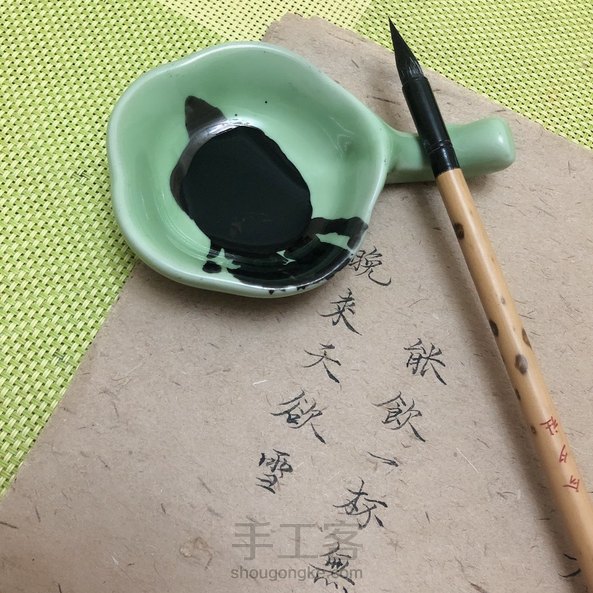 晚来天欲雪
能飲一杯無
手工客
shougongke.com